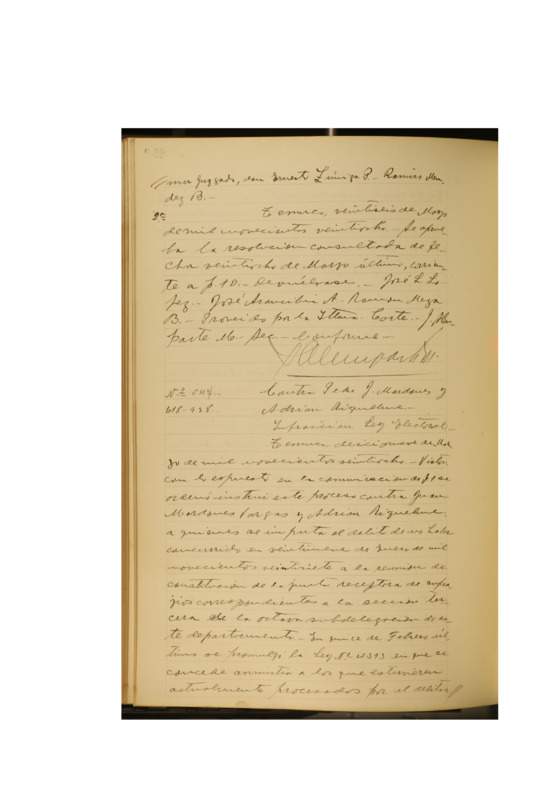 mer Juzgado, don Ernesto Zúñiga P. Ramiro Men-
dez B. -
2ª Temuco, veintiseis de Mayo
de mil novecientos veintiocho. Se aprue-
ba la resolucion consultada de fe-
cha veintiocho de Marzo último, corrien-
te a f 10. - Devuélvase. - José L. Lo-
pez. - José Arancibia A. Ramon Meza
B. - Proveido por la Iltma. Corte. - J. Alem-
parte M. Sec. - Conforme -
JAlemparte M.
Nº 544.
618-928.
Contra Pedro J. Mardones y
Adrian Riquelme
Infraccion Ley Electoral -
Temuco, diecinueve de Mar-
zo de mil novecientos veintiocho. - Vistos:
con lo expuesto en la comunicacion de f 1 se
ordenó instruir este proceso contra Juan
Mardones Vargas y Adrian Riquelme,
a quienes se imputa el delito de no haber
concurrido en veintinueve de Enero de mil
novecientos veintisiete a la reunion de
constitucion de la junta receptora de sufra-
jios correspondientes a la seccion ter-
cera de la octava subdelegacion de es-
te departamento. - En quince de Febrero úl-
timo se promulgó la Ley Nº 4313 en que se
concede amnistia a los que estuvieren
actualmente procesados por el delito